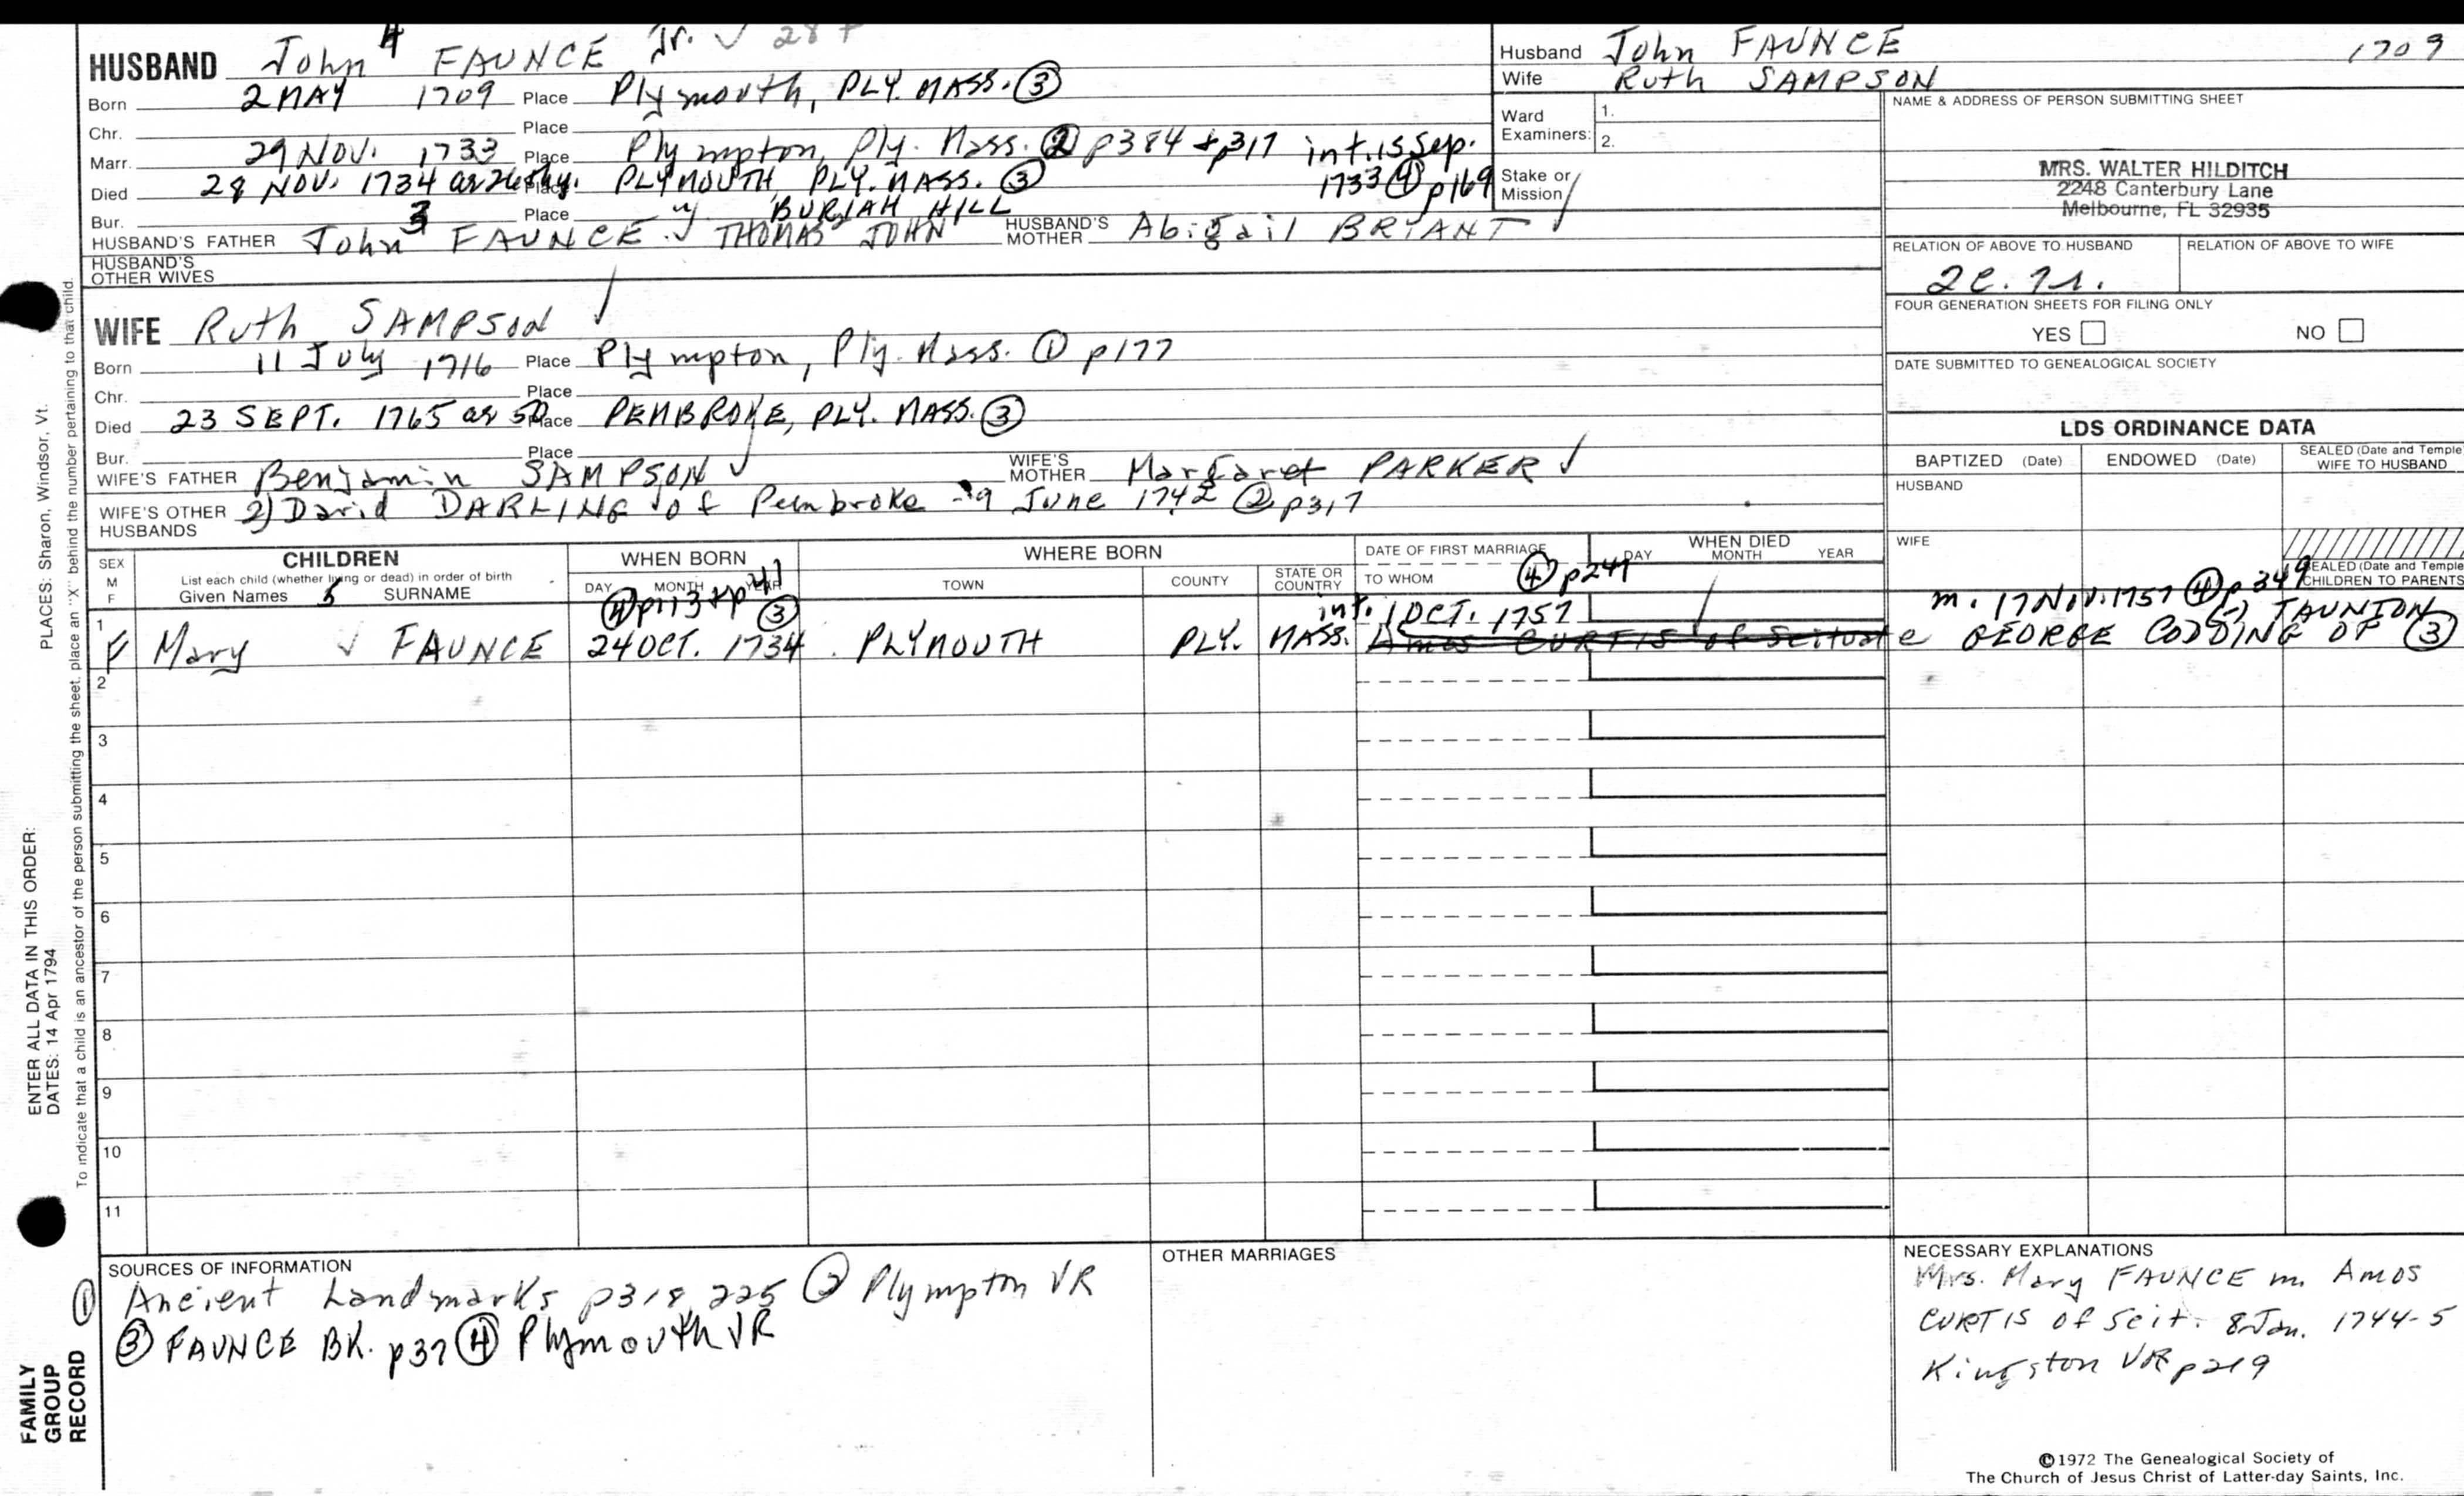 HUSBAND John 4 FAUNCE Jr. ✓ 28
Born 2 MAY 1709 Place Plymouth, PLY. MASS. ③
Chr. Place
Marr. 29 NOV. 1733 Place Plympton, Ply. Mass. ② p384 + p317 int. 15 Sep. 1733 ④ p169
Died 28 NOV. 1734 Place PLYMOUTH, PLY. MASS. ③
Bur. Place " BURIAH HILL
HUSBAND'S FATHER John 3 FAUNCE ✓ THOMAS 2 JOHN 1 HUSBAND'S MOTHER Abigail BRYANT ✓
HUSBAND'S OTHER WIVES
WIFE Ruth SAMPSON ✓
Born 11 July 1716 Place Plympton, Ply. Mass. ① p177
Chr. Place
Died 23 SEPT. 1765 ae 50 Place PEMBROKE, PLY. MASS. ③
Bur. Place
WIFE'S FATHER Benjamin SAMPSON ✓ WIFE'S MOTHER Margaret PARKER ✓
WIFE'S OTHER HUSBANDS 2) David DARLING of Pembroke 9 June 1742 ② p317
Husband John FAUNCE 1709
Wife Ruth SAMPSON
Ward Examiners: 1.
2.
Stake or Mission
NAME & ADDRESS OF PERSON SUBMITTING SHEET
MRS. WALTER HILDITCH
2248 Canterbury Lane
Melbourne, FL 32935
RELATION OF ABOVE TO HUSBAND RELATION OF ABOVE TO WIFE
FOUR GENERATION SHEETS FOR FILING ONLY
YES NO
DATE SUBMITTED TO GENEALOGICAL SOCIETY
LDS ORDINANCE DATA
BAPTIZED (Date) ENDOWED (Date) SEALED (Date and Temple) WIFE TO HUSBAND
HUSBAND
WIFE
SEALED (Date and Temple) CHILDREN TO PARENTS
SEX M F
CHILDREN
List each child (whether living or dead) in order of birth
Given Names 5 SURNAME
WHEN BORN
DAY MONTH YEAR
WHERE BORN
TOWN COUNTY STATE OR COUNTRY
DATE OF FIRST MARRIAGE
TO WHOM
WHEN DIED
DAY MONTH YEAR
④ p113 + p41 ③
④ p241
int. 1 OCT. 1757 m. 17 Nov. 1757 ④ p349
1 F Mary ✓ FAUNCE 24 OCT. 1734 PLYMOUTH PLY. MASS. Amos CURTIS of Scituate GEORGE CODDING OF TAUNTON ③
2
3
4
5
6
7
8
9
10
11
SOURCES OF INFORMATION
① Ancient Landmarks p318, 225 ② Plympton VR
③ FAUNCE BK. p37 ④ Plymouth VR
OTHER MARRIAGES
NECESSARY EXPLANATIONS
Mrs. Mary FAUNCE m. Amos
CURTIS of Scit. 8 Jan. 1744-5
Kingston VR p219
©1972 The Genealogical Society of
The Church of Jesus Christ of Latter-day Saints, Inc.
PLACES: Sharon, Windsor, Vt.
To indicate that a child is an ancestor of the person submitting the sheet, place an "X" behind the number pertaining to that child.
ENTER ALL DATA IN THIS ORDER:
DATES: 14 Apr 1794
FAMILY
GROUP
RECORD